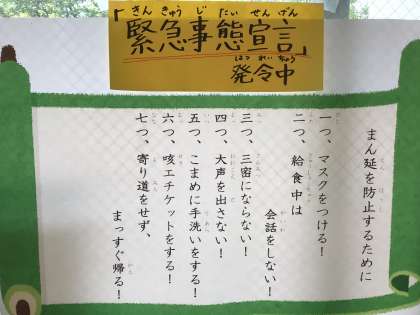 「緊急事態宣言」
発令中
まん延を防止するために
一つ、マスクをつける！
二つ、給食中は
会話をしない！
三つ、三密にならない！
四つ、大声を出さない！
五つ、こまめに手洗いをする！
六つ、咳エチケットをする！
七つ、寄り道をせず、
まっすぐ帰る！